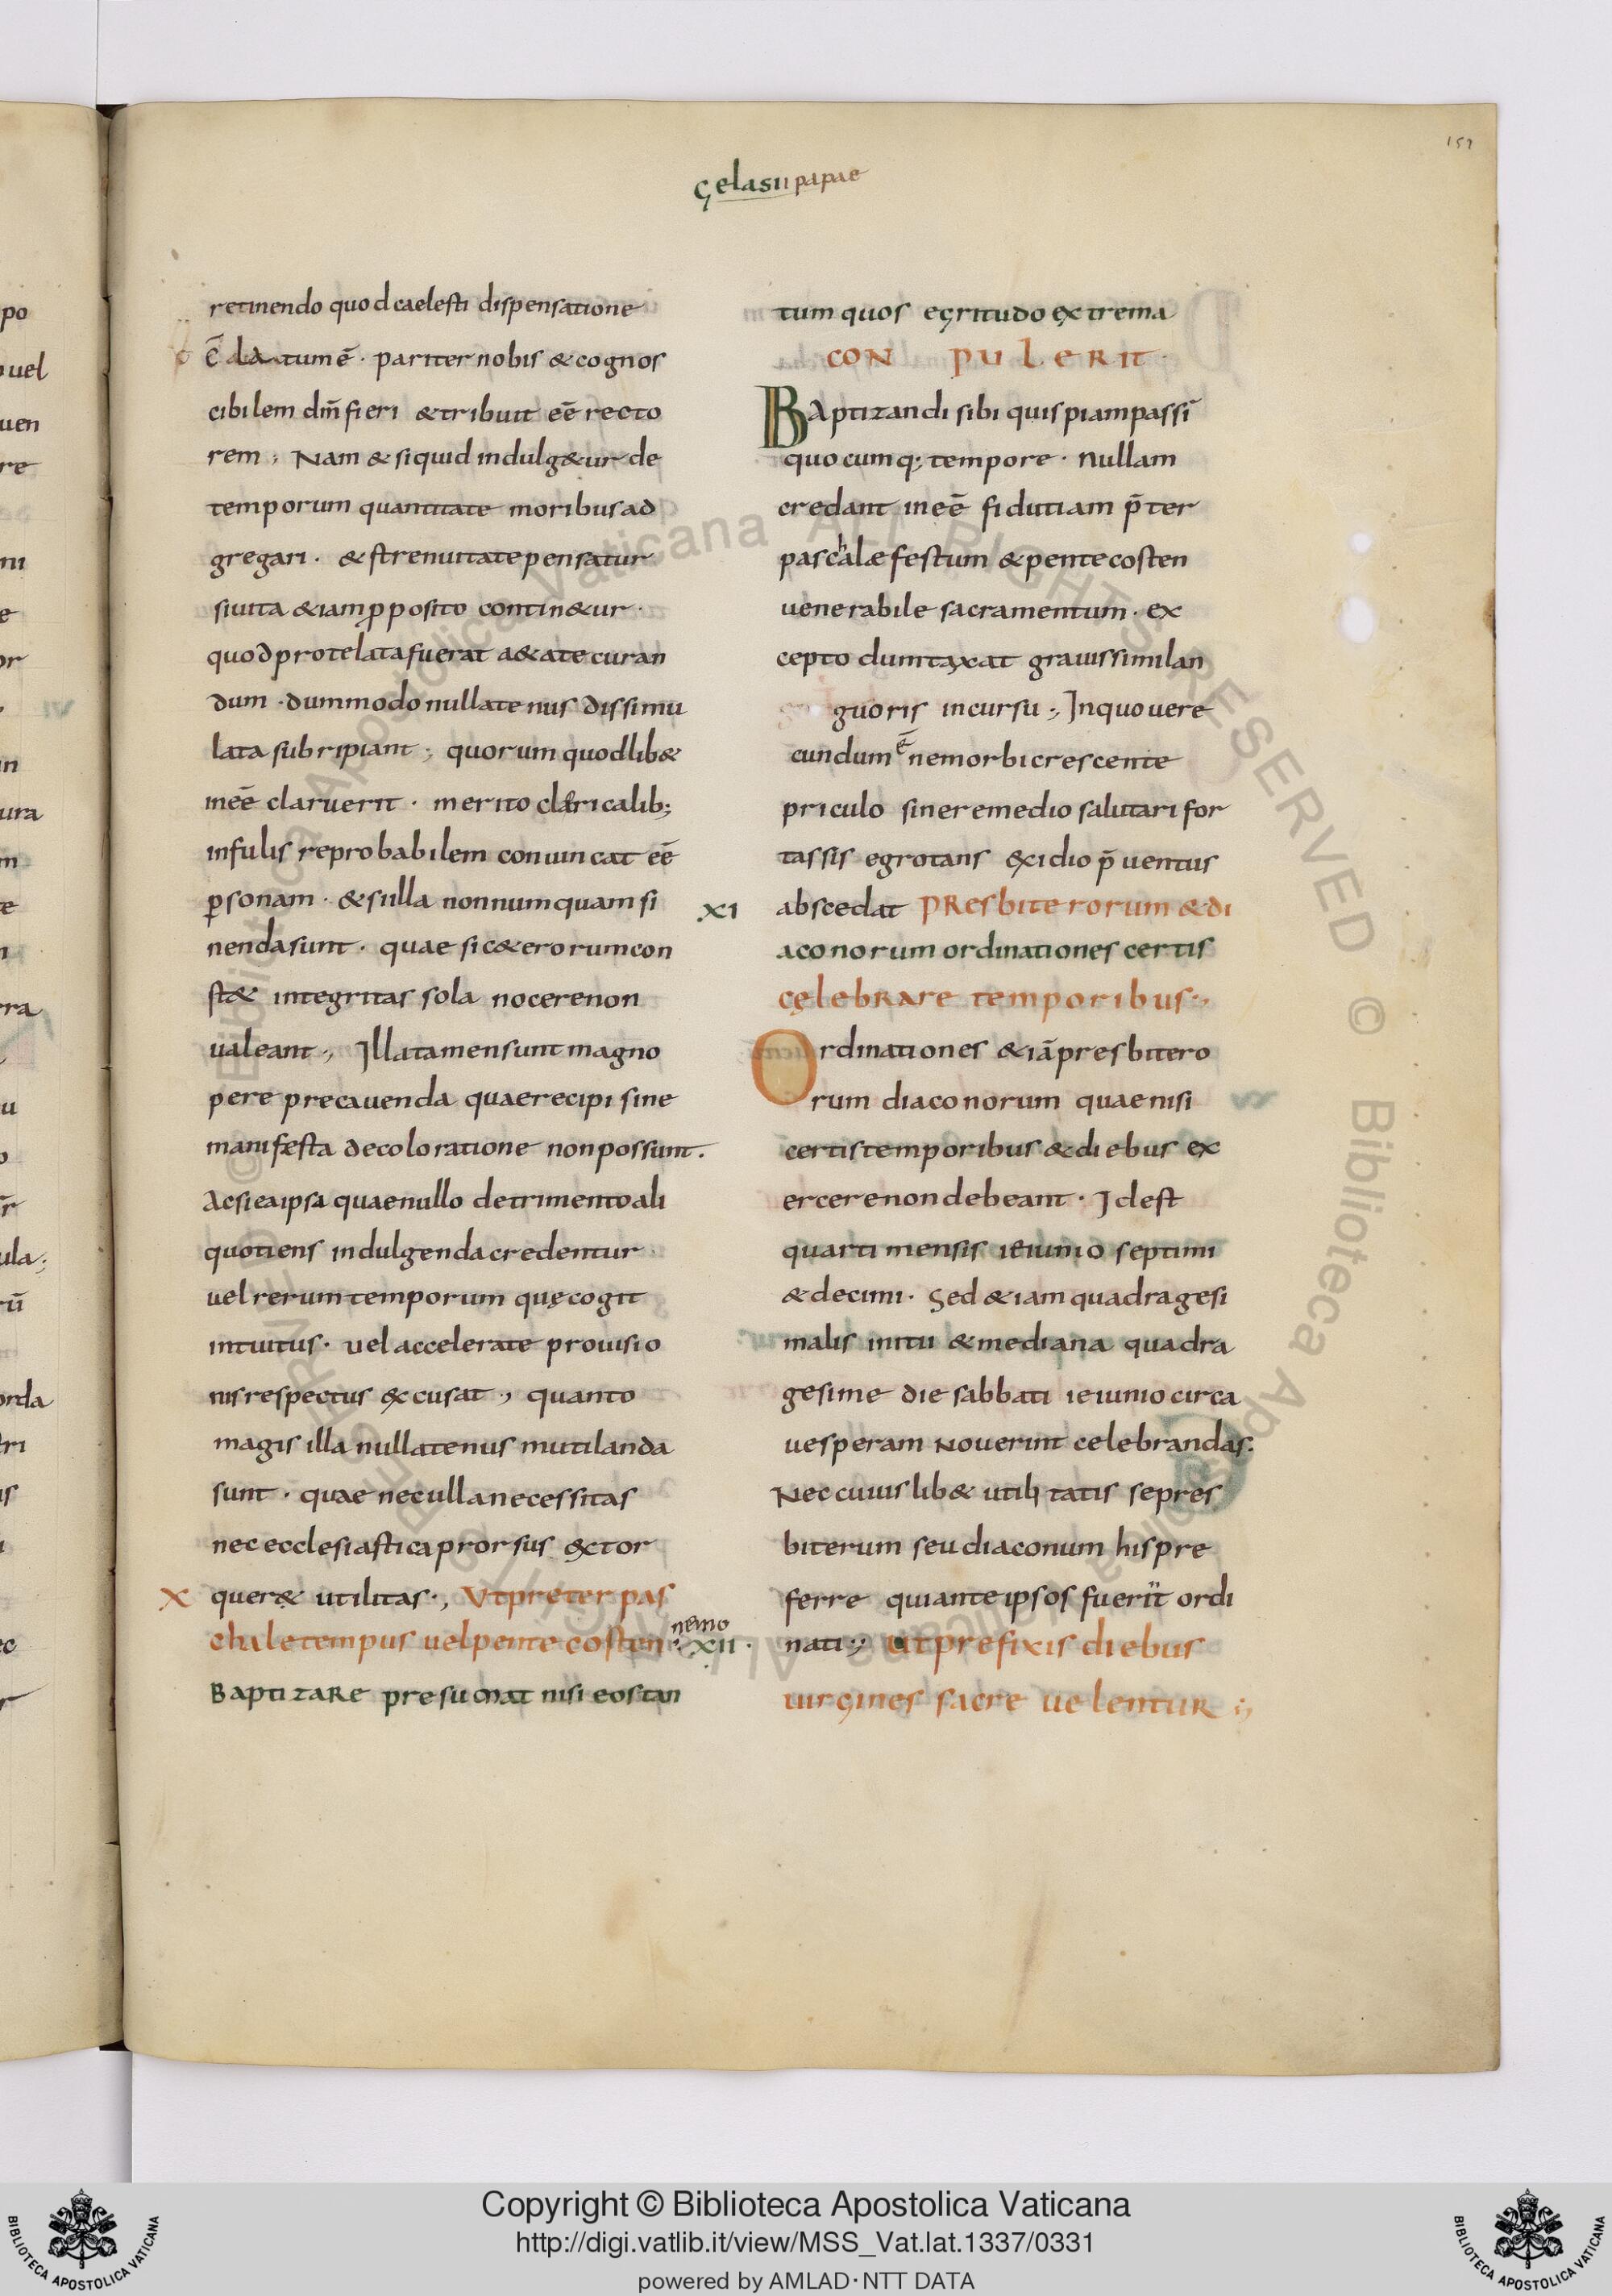 157
gelasii papae
retinendo quod caelesti dispensatione
tum ē · pariter nobis & cognos
cibilem dm̄ fieri & tribuit eē recto
rem ; Nam & siquid indulg&ur de
temporum quantitate moribus ad
gregari · & strenuitate pensatur
siuita & iam p̱posito contin&ur ·
quod protelata fuerat a&ate curan
dum · dummodo nullatenus dissimu
lata subripiant ; quorum quodlib&
ineē claruerit · merito clæricalib;
infulis reprobabilem conuincat eē
ꝑsonam · & si illa nonnumquam si
nenda sunt · quae si c&erorum con
st& integritas sola nocere non
ualeant ; Illa tamen sunt magno
pere precauenda quae recipi sine
manifesta decoloratione non possunt .
Ac si ea ipsa quae nullo detrimento ali
quotiens indulgenda credentur
uel rerum temporum quę cogit
intuitus · uel accelerate prouisio
nis respectus excusat ; quanto
magis illa nullatenus mutilanda
sunt · quae nec ulla necessitas
nec ecclesiastica prorsus extor
X quer& utilitas · ; Ut preter pas
chale tempus uel pentecosten nemo
Baptizare presumat nisi eos tan
tum quos egritudo extrema
CON PULERIT ·
Baptizandi sibi quispiam passī
quocumq; tempore · Nullam
credant ineē fidutiam p̄ter
paschalæ festum & pentecosten
uenerabile sacramentum · ex
cepto dumtaxat grauissimi lan
guoris incursu ; In quo uere
cundum ē nemorbi crescente
priculo sine remedio salutari for
tassis egrotans exidio p̄uentus
XI abscedat PResbiterorum & di
aconorum ordinationes certis
cęlebRare temporibus · ;
Ordinationes & iā presbitero
rum diaconorum quae nisi
certis temporibus & diebus ex
ercere non debeant · Id est
quarti mensis ieiunio septimi
& decimi · Sed & iam quadragesi
malis initii & mediana quadra
gesime die sabbati ieiunio circa
uesperam Nouerint celebrandas .
Nec cuiuslib& utilitatis se pres
biterum seu diaconum his pre
ferre qui ante ipsos fuerīt ordi
XII · nati ; Ut prefixis diebus
uirgines sacre uelentuR ;
po
uel
uen
re
ni
e
or
VI
in
ura
m
te
rra
u
ula ;
rū
orda
tri
us
ec
© Biblioteca Apostolica Vaticana ALL RIGHTS RESERVED © Biblioteca Apostolica Vaticana ALL RIGHTS RESERVED
Copyright © Biblioteca Apostolica Vaticana
http://digi.vatlib.it/view/MSS_Vat.lat.1337/0331
powered by AMLAD·NTT DATA
BIBLIOTECA APOSTOLICA VATICANA
BIBLIOTECA APOSTOLICA VATICANA